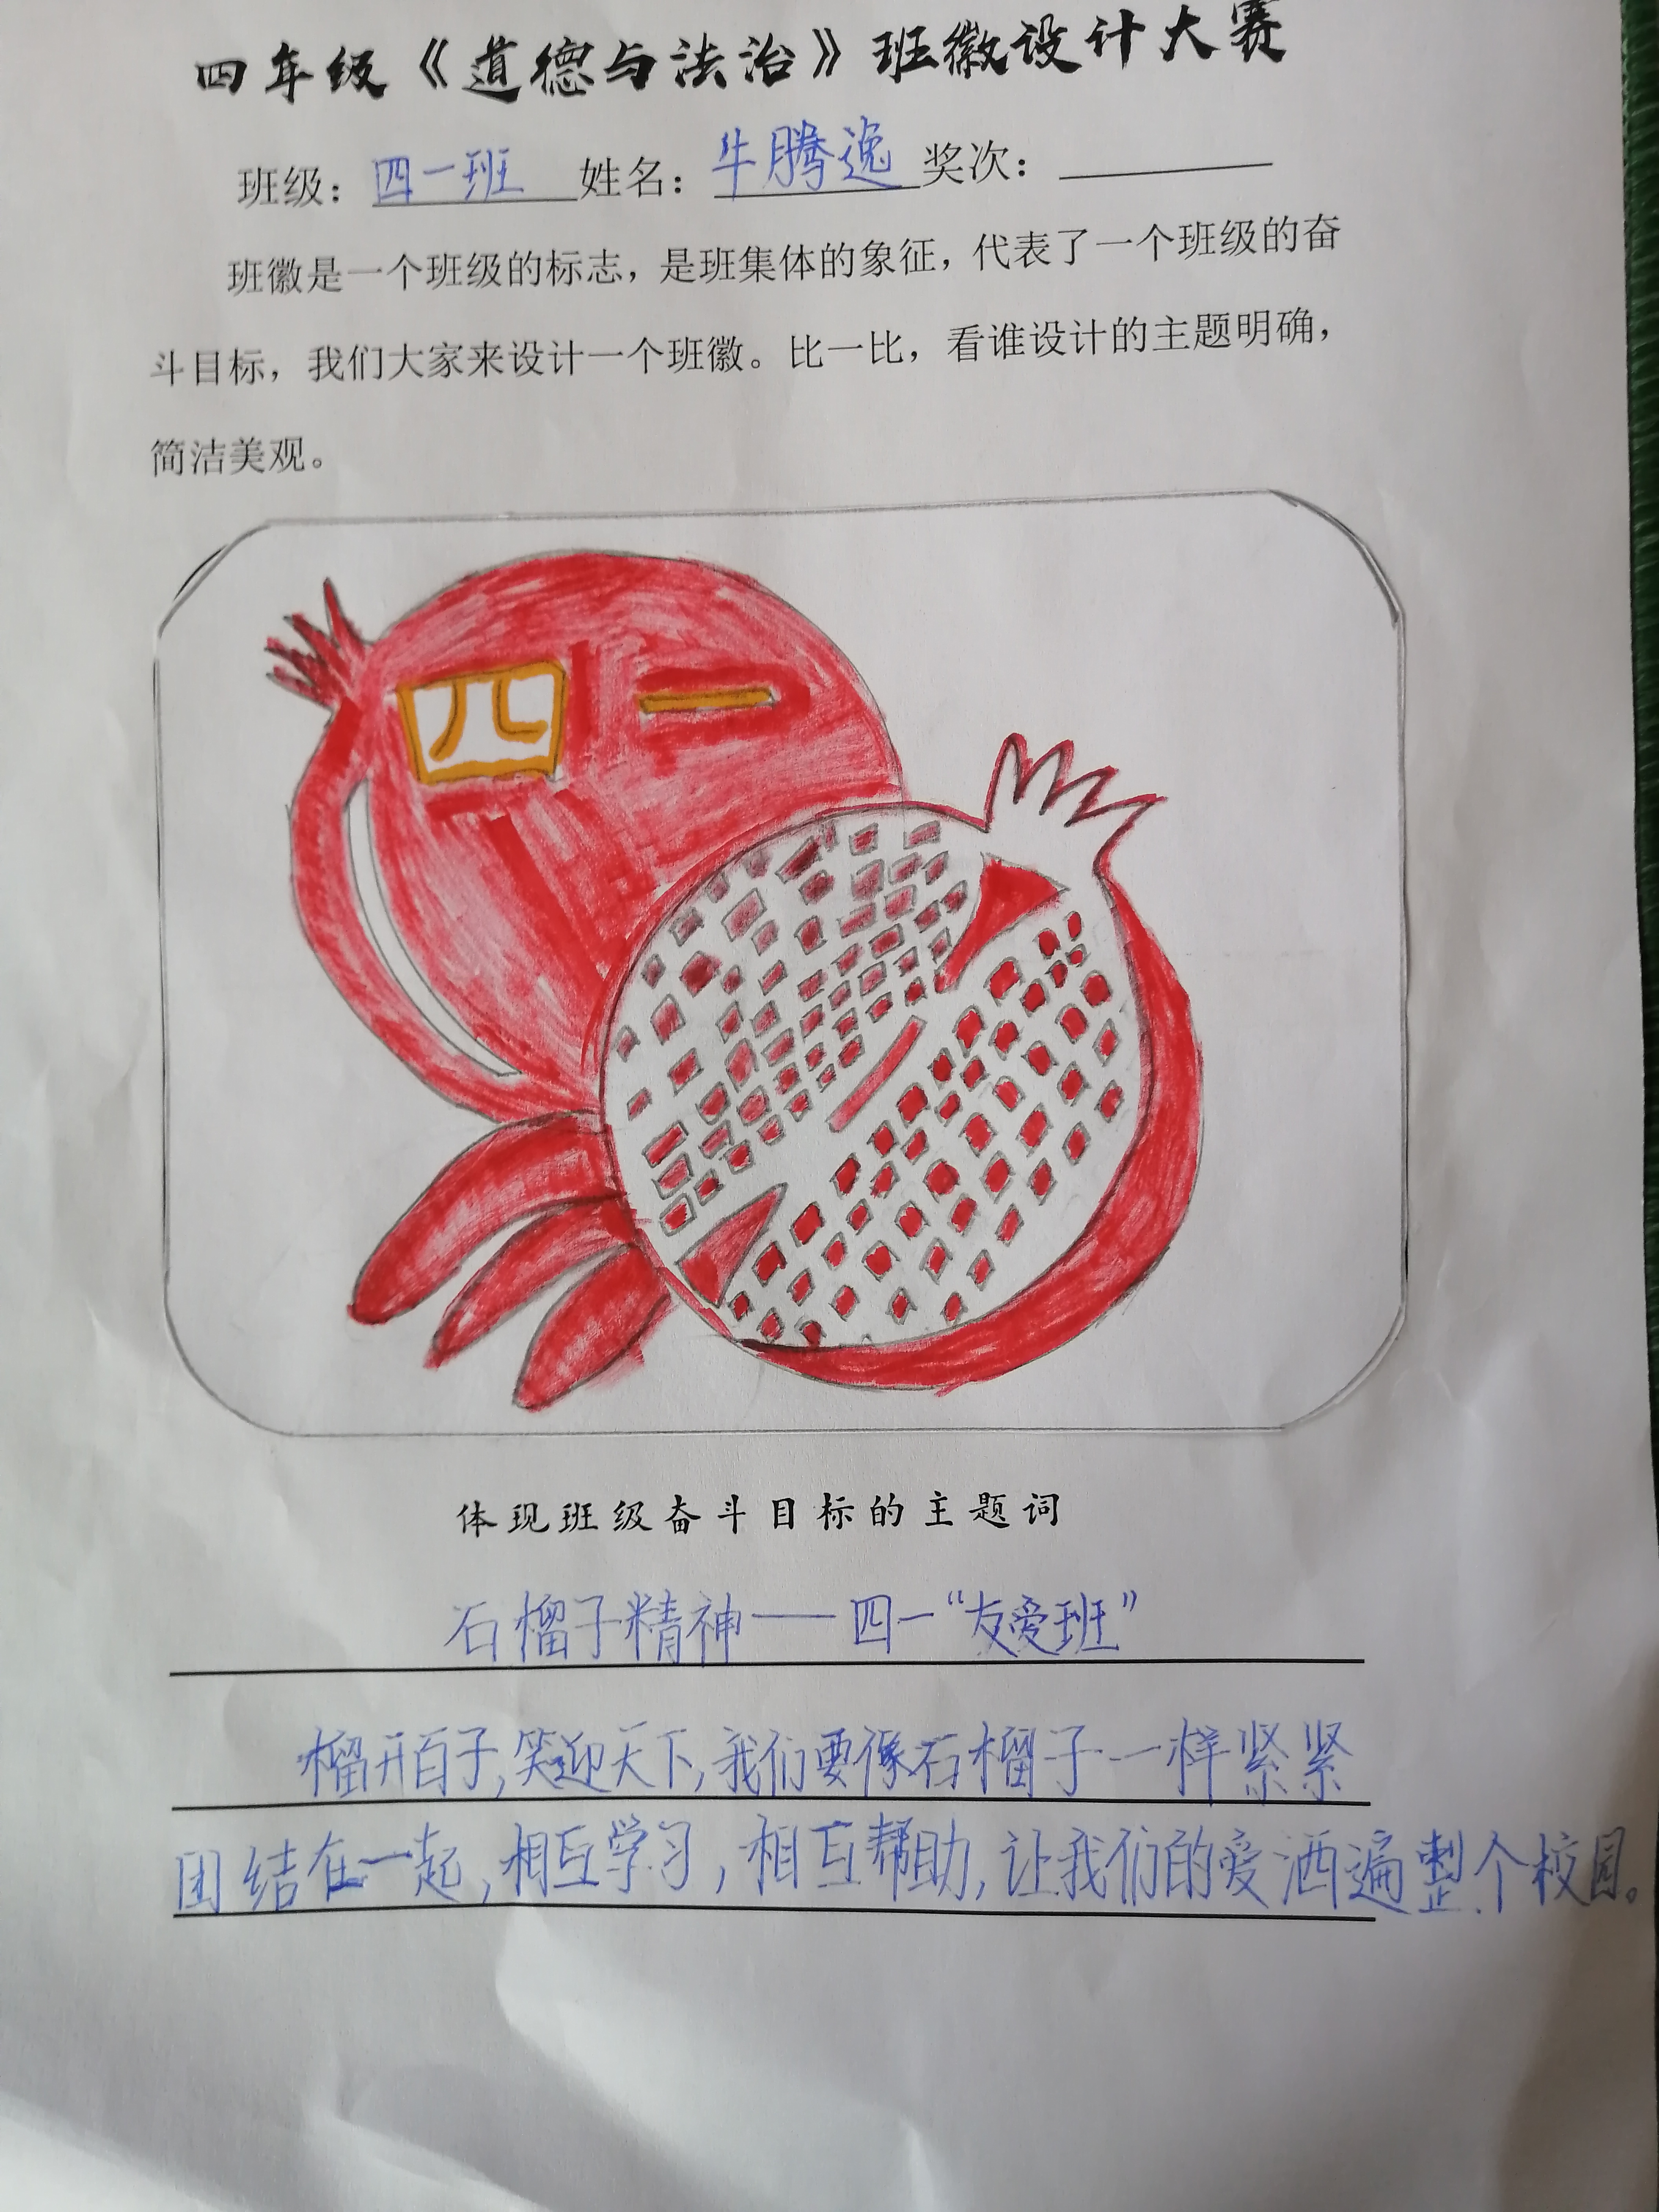 四年级《道德与法治》班徽设计大赛
班级：四一班 姓名：牛腾逸 奖次：
班徽是一个班级的标志，是班集体的象征，代表了一个班级的奋
斗目标，我们大家来设计一个班徽。比一比，看谁设计的主题明确，
简洁美观。
四一
体现班级奋斗目标的主题词
石榴子精神——四一“友爱班”
榴开百子，笑迎天下，我们要像石榴子一样紧紧
团结在一起，相互学习，相互帮助，让我们的爱洒遍整个校园。